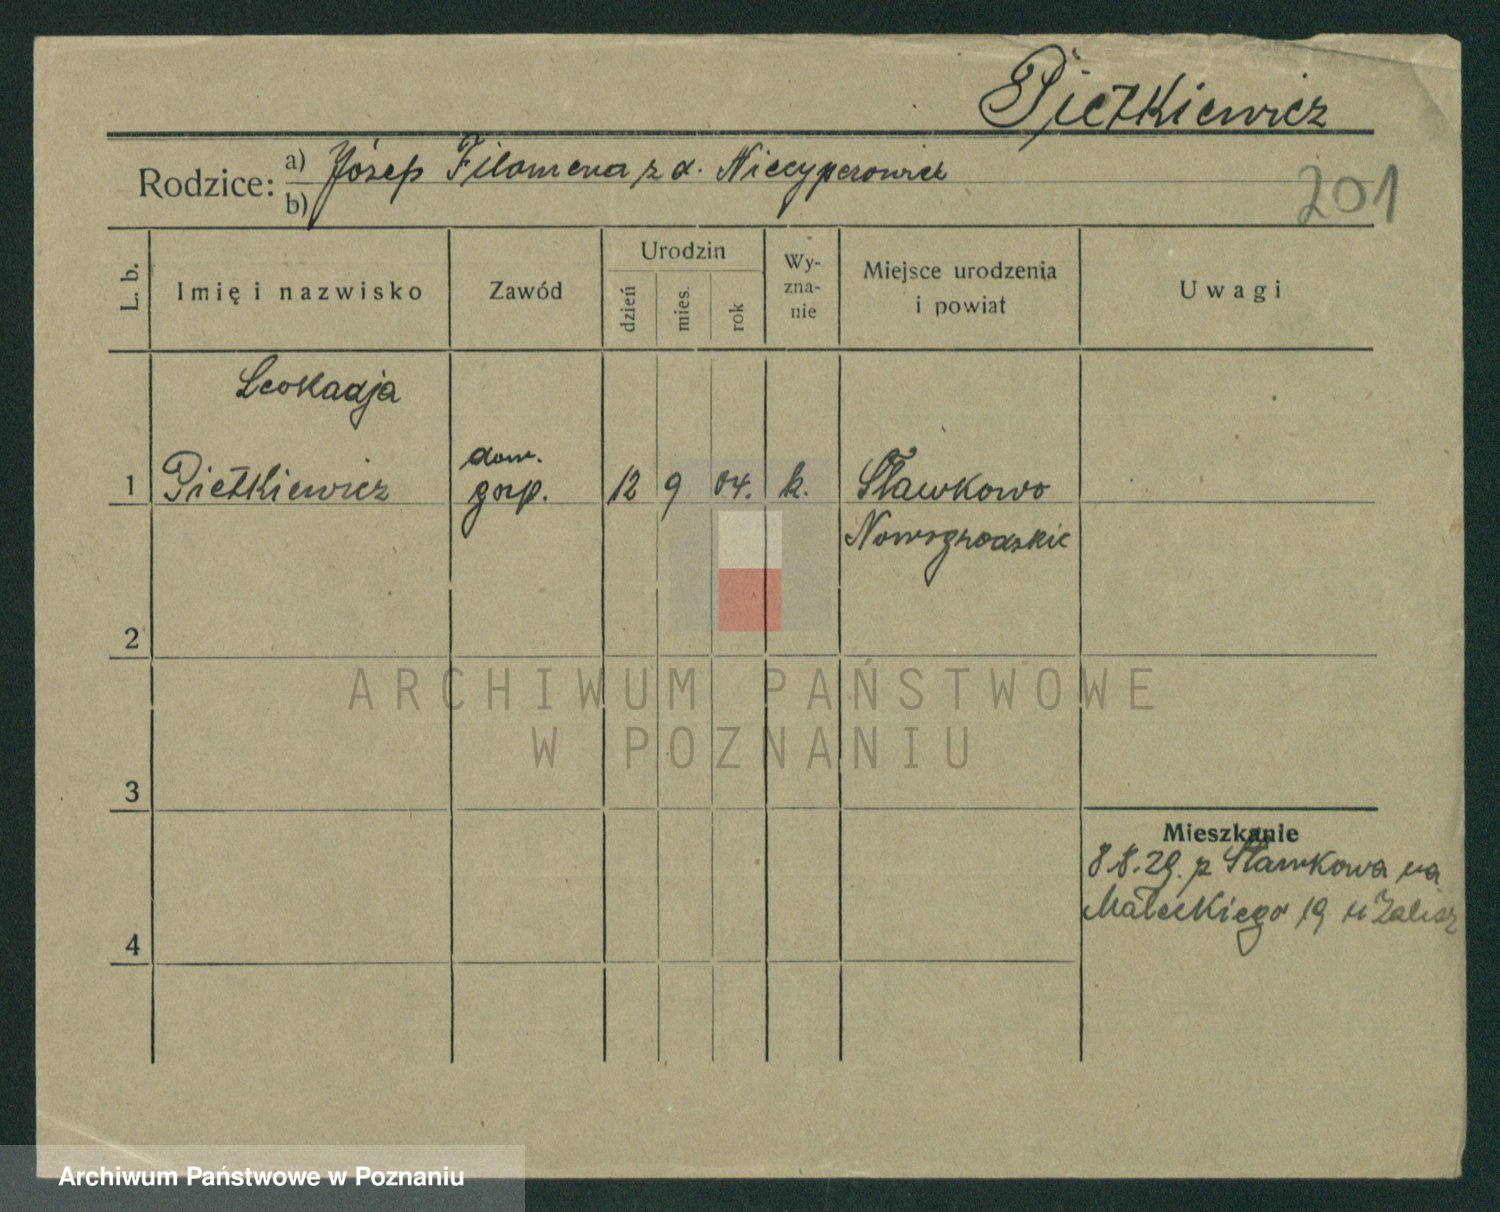 Pietkiewicz
Rodzice: a) Józef Filomena z d. Niecyperowicz
b)
201
L. b.
Imię i nazwisko
Zawód
Urodzin
dzień
mies.
rok
Wy-
zna-
nie
Miejsce urodzenia
i powiat
Uwagi
Leokadja
1 Pietkiewicz dom. 12 9 04. k. Sławkowo
gosp.
Nowogrodzkie
2
ARCHIWUM PAŃSTWOWE
W POZNANIU
3
Mieszkanie
8.8.29. z Sławkowa na
Małeckiego 19 u
4
Archiwum Państwowe w Poznaniu